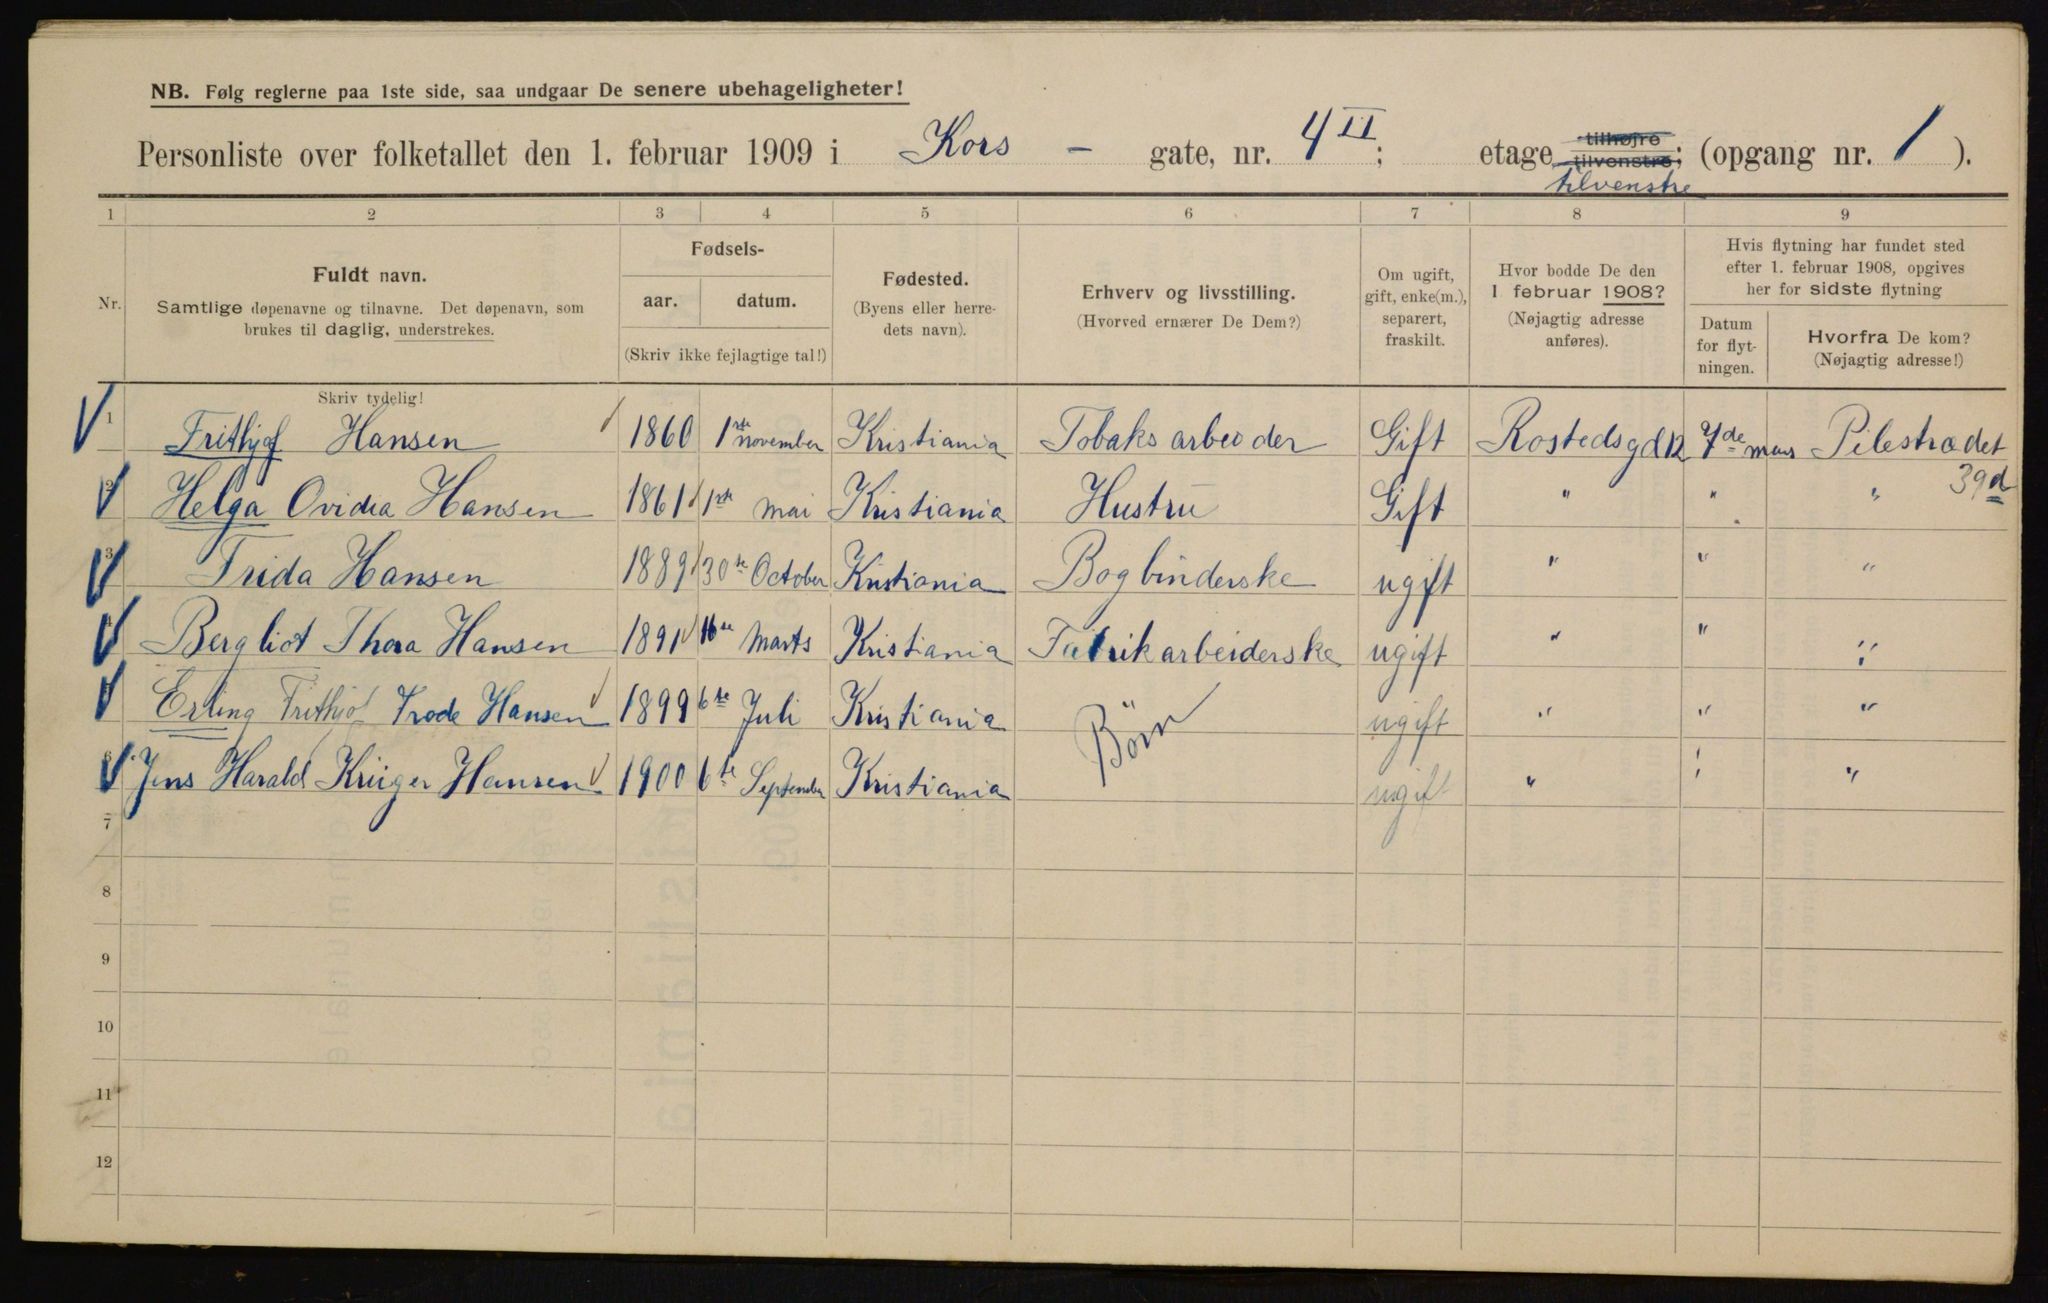 NB. Følg reglerne paa 1ste side, saa undgaar De senere ubehageligheter!
Personliste over folketallet den 1. februar 1909 i Kors - gate, nr. 4 II; etage tilhøjre tilvenstre; (opgang nr. 1).
tilvenstre
1 2 3 4 5 6 7 8 9
Nr.
Fuldt navn.
Samtlige døpenavne og tilnavne. Det døpenavn, som
brukes til daglig, understrekes.
Fødsels-
aar. datum.
(Skriv ikke fejlagtige tal!)
Fødested.
(Byens eller herre-
dets navn).
Erhverv og livsstilling.
(Hvorved ernærer De Dem?)
Om ugift,
gift, enke(m.),
separert,
fraskilt.
Hvor bodde De den
1 februar 1908?
(Nøjagtig adresse
anføres).
Hvis flytning har fundet sted
efter 1. februar 1908, opgives
her for sidste flytning
Datum
for flyt-
ningen.
Hvorfra De kom?
(Nøjagtig adresse!)
Skriv tydelig!
1 Frithjof Hansen 1860 1ste november Kristiania Tobaks arbeider Gift Rostedsgd 12 7de mars Pilestrædet 39d
2 Helga Ovidia Hansen 1861 1ste mai Kristiania Hustru Gift " " "
3 Frida Hansen 1889 30te October Kristiania Bogbinderske ugift " " "
Bergliot Thora Hansen 1891 16de Marts Kristiania Fabrikarbeiderske ugift " " "
Erling Frithjof Frode Hansen 1899 6te Juli Kristiania Børn ugift " " "
6 Jens Harald Krüger Hansen 1900 6te September Kristiania ugift " " "
7
8
9
10
11
12